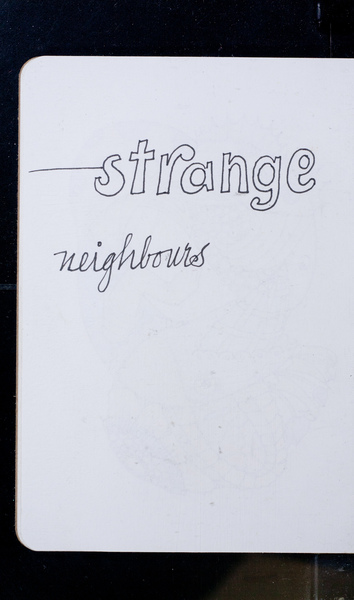 strange
neighbours